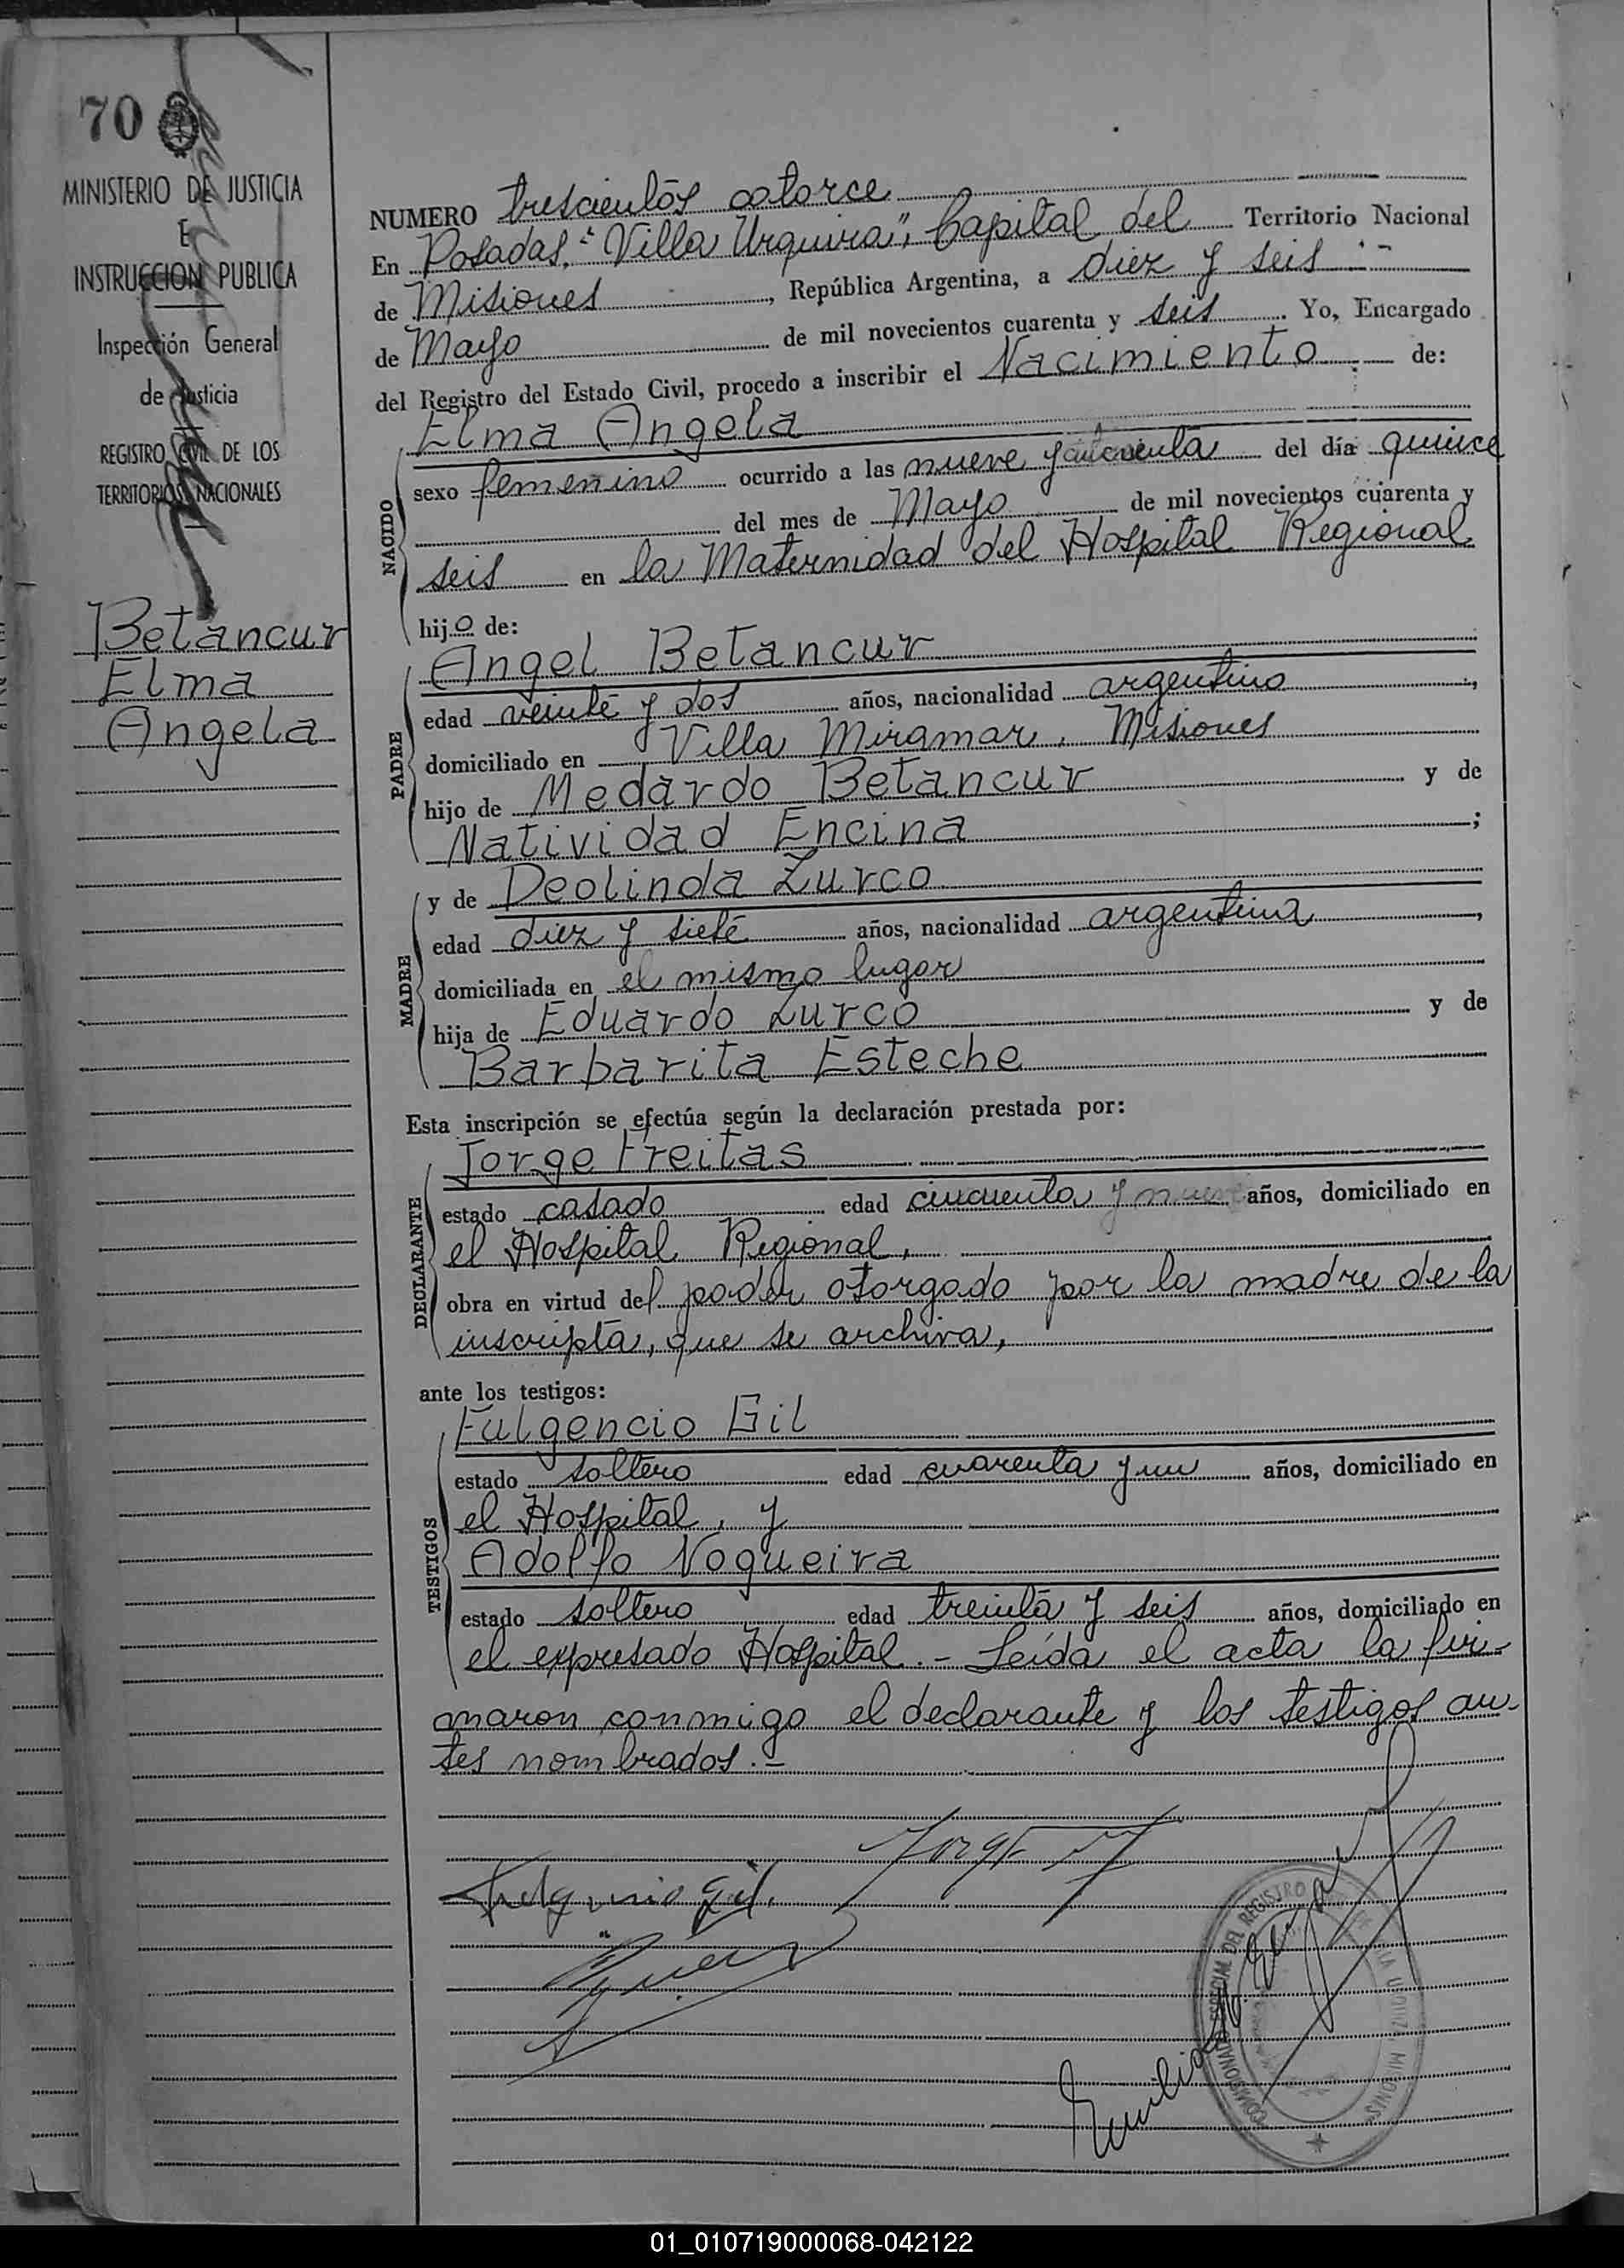 70
MINISTERIO DE JUSTICIA
E
INSTRUCCION PUBLICA
Inspección General
de Justicia
REGISTRO CIVIL DE LOS
TERRITORIOS NACIONALES
Betancur
Elma
Angela
NUMERO trescientos catorce
En Posadas, "Villa Urquiza", Capital del Territorio Nacional
de Misiones, República Argentina, a diez y seis
de Mayo de mil novecientos cuarenta y seis. Yo, Encargado
del Registro del Estado Civil, procedo a inscribir el Nacimiento de:
NACIDO
Elma Angela
sexo femenino ocurrido a las nueve y del día quince
del mes de Mayo de mil novecientos cuarenta y
seis en la Maternidad del Hospital Regional
hijo de:
PADRE
Angel Betancur
edad veinte y dos años, nacionalidad argentino,
domiciliado en Villa Miramar, Misiones
hijo de Medardo Betancur y de
Natividad Encina;
MADRE
y de Deolinda Zurco
edad diez y siete años, nacionalidad argentina,
domiciliada en el mismo lugar
hija de Eduardo Zurco y de
Barbarita Esteche
Esta inscripción se efectúa según la declaración prestada por:
DECLARANTE
Jorge Freitas
estado casado edad cincuenta y años, domiciliado en
el Hospital Regional,
obra en virtud del poder otorgado por la madre de la
inscripta, que se archiva,
ante los testigos:
TESTIGOS
Fulgencio Gil
estado soltero edad cuarenta y un años, domiciliado en
el Hospital, y
Adolfo Nogueira
estado soltero edad treinta y seis años, domiciliado en
el expresado Hospital.- Leída el acta la fir-
maron conmigo el declarante y los testigos an-
tes nombrados.-
Jorge F
Fulgencio Gil.
Emilio
COMISIONADO ESPECIAL DEL REGISTRO
MISIONES
01_010719000068-042122